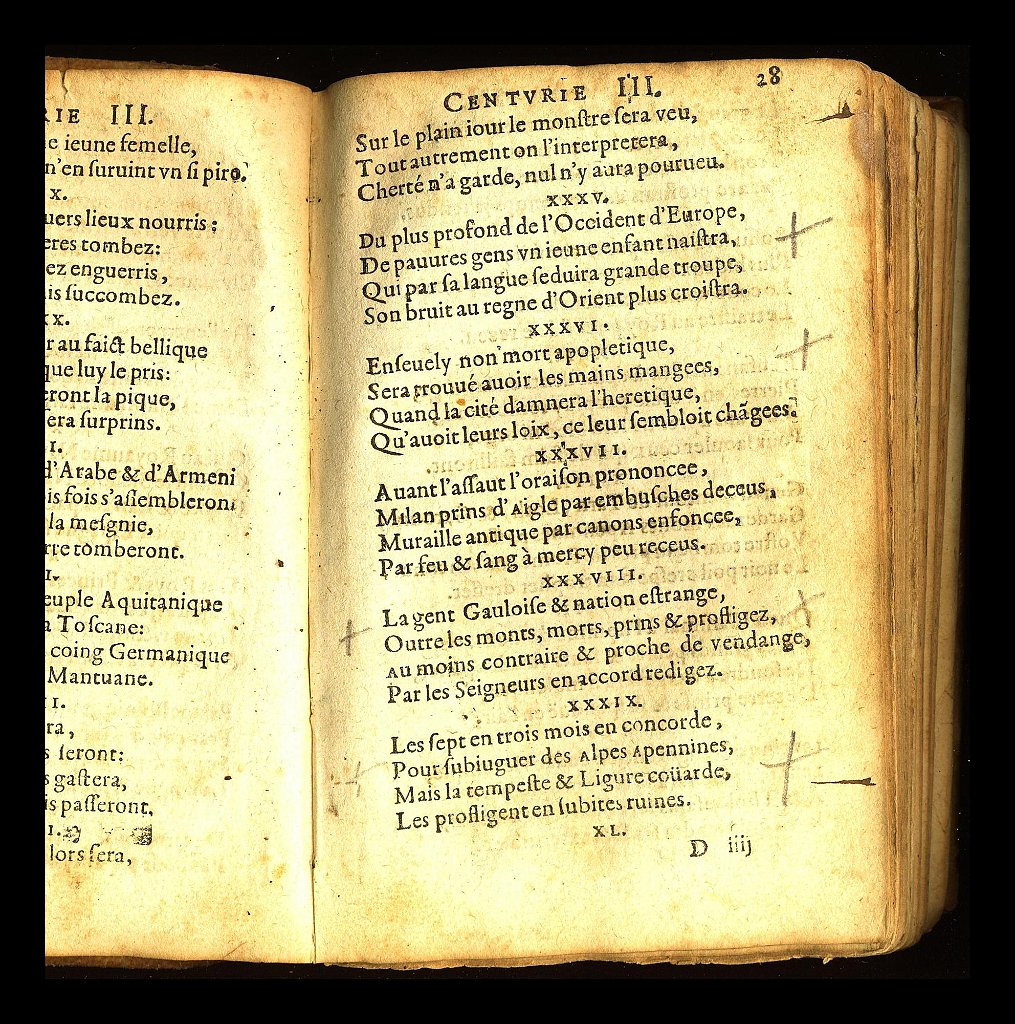 RIE III.
e ieune femelle,
n'en suruint vn si piro.
X.
uers lieux nourris :
eres tombez:
ez enguerris,
is succombez.
XX.
r au faict bellique
que luy le pris:
eront la pique,
era surprins.
I.
d'Arabe & d'Armeni
is fois s'assembleron
la mesgnie,
rre tomberont.
I.
euple Aquitanique
a Toscane:
coing Germanique
Mantuane.
II.
ra,
s seront:
s gastera,
is passeront.
I.
lors sera,
CENTVRIE III. 28
Sur le plain iour le monstre sera veu,
Tout autrement on l'interpretera,
Cherté n'a garde, nul n'y aura pourueu.
XXXV.
Du plus profond de l'Occident d'Europe,
De pauures gens vn ieune enfant naistra,
Qui par sa langue seduira grande troupe,
Son bruit au regne d'Orient plus croistra.
XXXVI.
Enseuely non mort apopletique,
Sera trouué auoir les mains mangees,
Quand la cité damnera l'heretique,
Qu'auoit leurs loix, ce leur sembloit chãgees.
XXXVII.
Auant l'assaut l'oraison prononcee,
Milan prins d'Aigle par embusches deceus,
Muraille antique par canons enfoncee,
Par feu & sang à mercy peu receus.
XXXVIII.
La gent Gauloise & nation estrange,
Outre les monts, morts, prins & profligez,
Au moins contraire & proche de vendange,
Par les Seigneurs en accord redigez.
XXXIX.
Les sept en trois mois en concorde,
Pour subiuguer des Alpes Apennines,
Mais la tempeste & Ligure coüarde,
Les profligent en subites ruines.
XL.
D iiij